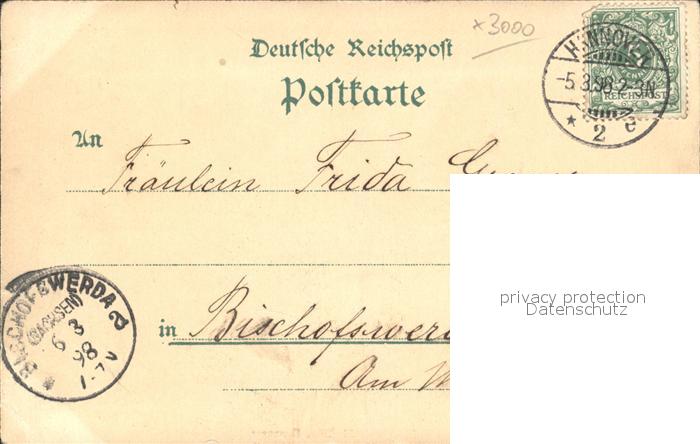 ×3000
Deutsche Reichspost
Postkarte
HANNOVER
-5.3.98.2-3N.
* 2 e
REICHSPOST
An
Fräulein Frida
BISCHOFSWERDA
(SACHSEN)
6 3
98
1-7V
in Bischofswer
Am
privacy protection
Datenschutz